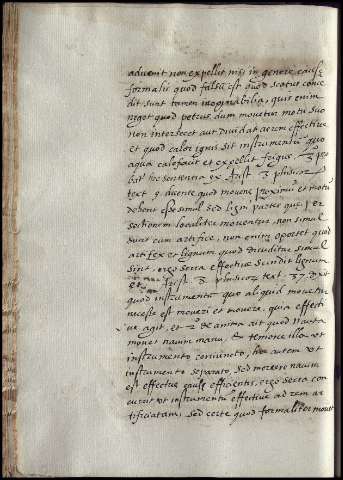 advenit non expellit nisi in genere causę
formalis quod falsũ est quod scotus conce
dit sunt tamen inopinabilia, quis enim
neget quod petrus dum movetur motu suo
non intersecet aut dividat aerem effective
et quod calor ignis sit instrumentũ quo
aqua calefiat et expellit frigus 3 pro
bat hęc sententia ex Arist 3 phisicorũ
text 9 quod movens proximũ et motũ
debent esse simul sed ligni partes quę per
sectionem localiter moventur, non simul
sunt cum artifice, non enim oportet quod
artifex et lignum quod dividitur simul
sint, ergo serra effective scindit lignum
et Arist 3 phisicorũ text 37 dixit
quod instrumentũ quo aliquid movetur
necesse est moveri et movere, quia effecti
ve agit, et 2 de anima ait quod nauta
movet navim manu, et temone illa ut
instrumento coniuncto, hoc autem ut
instrumento separato, sed movere navim
est effectus causę efficientis, ergo serra con
currit ut instrumentũ effective ad rem ar
tificiatam, sed certe quod formaliter movet